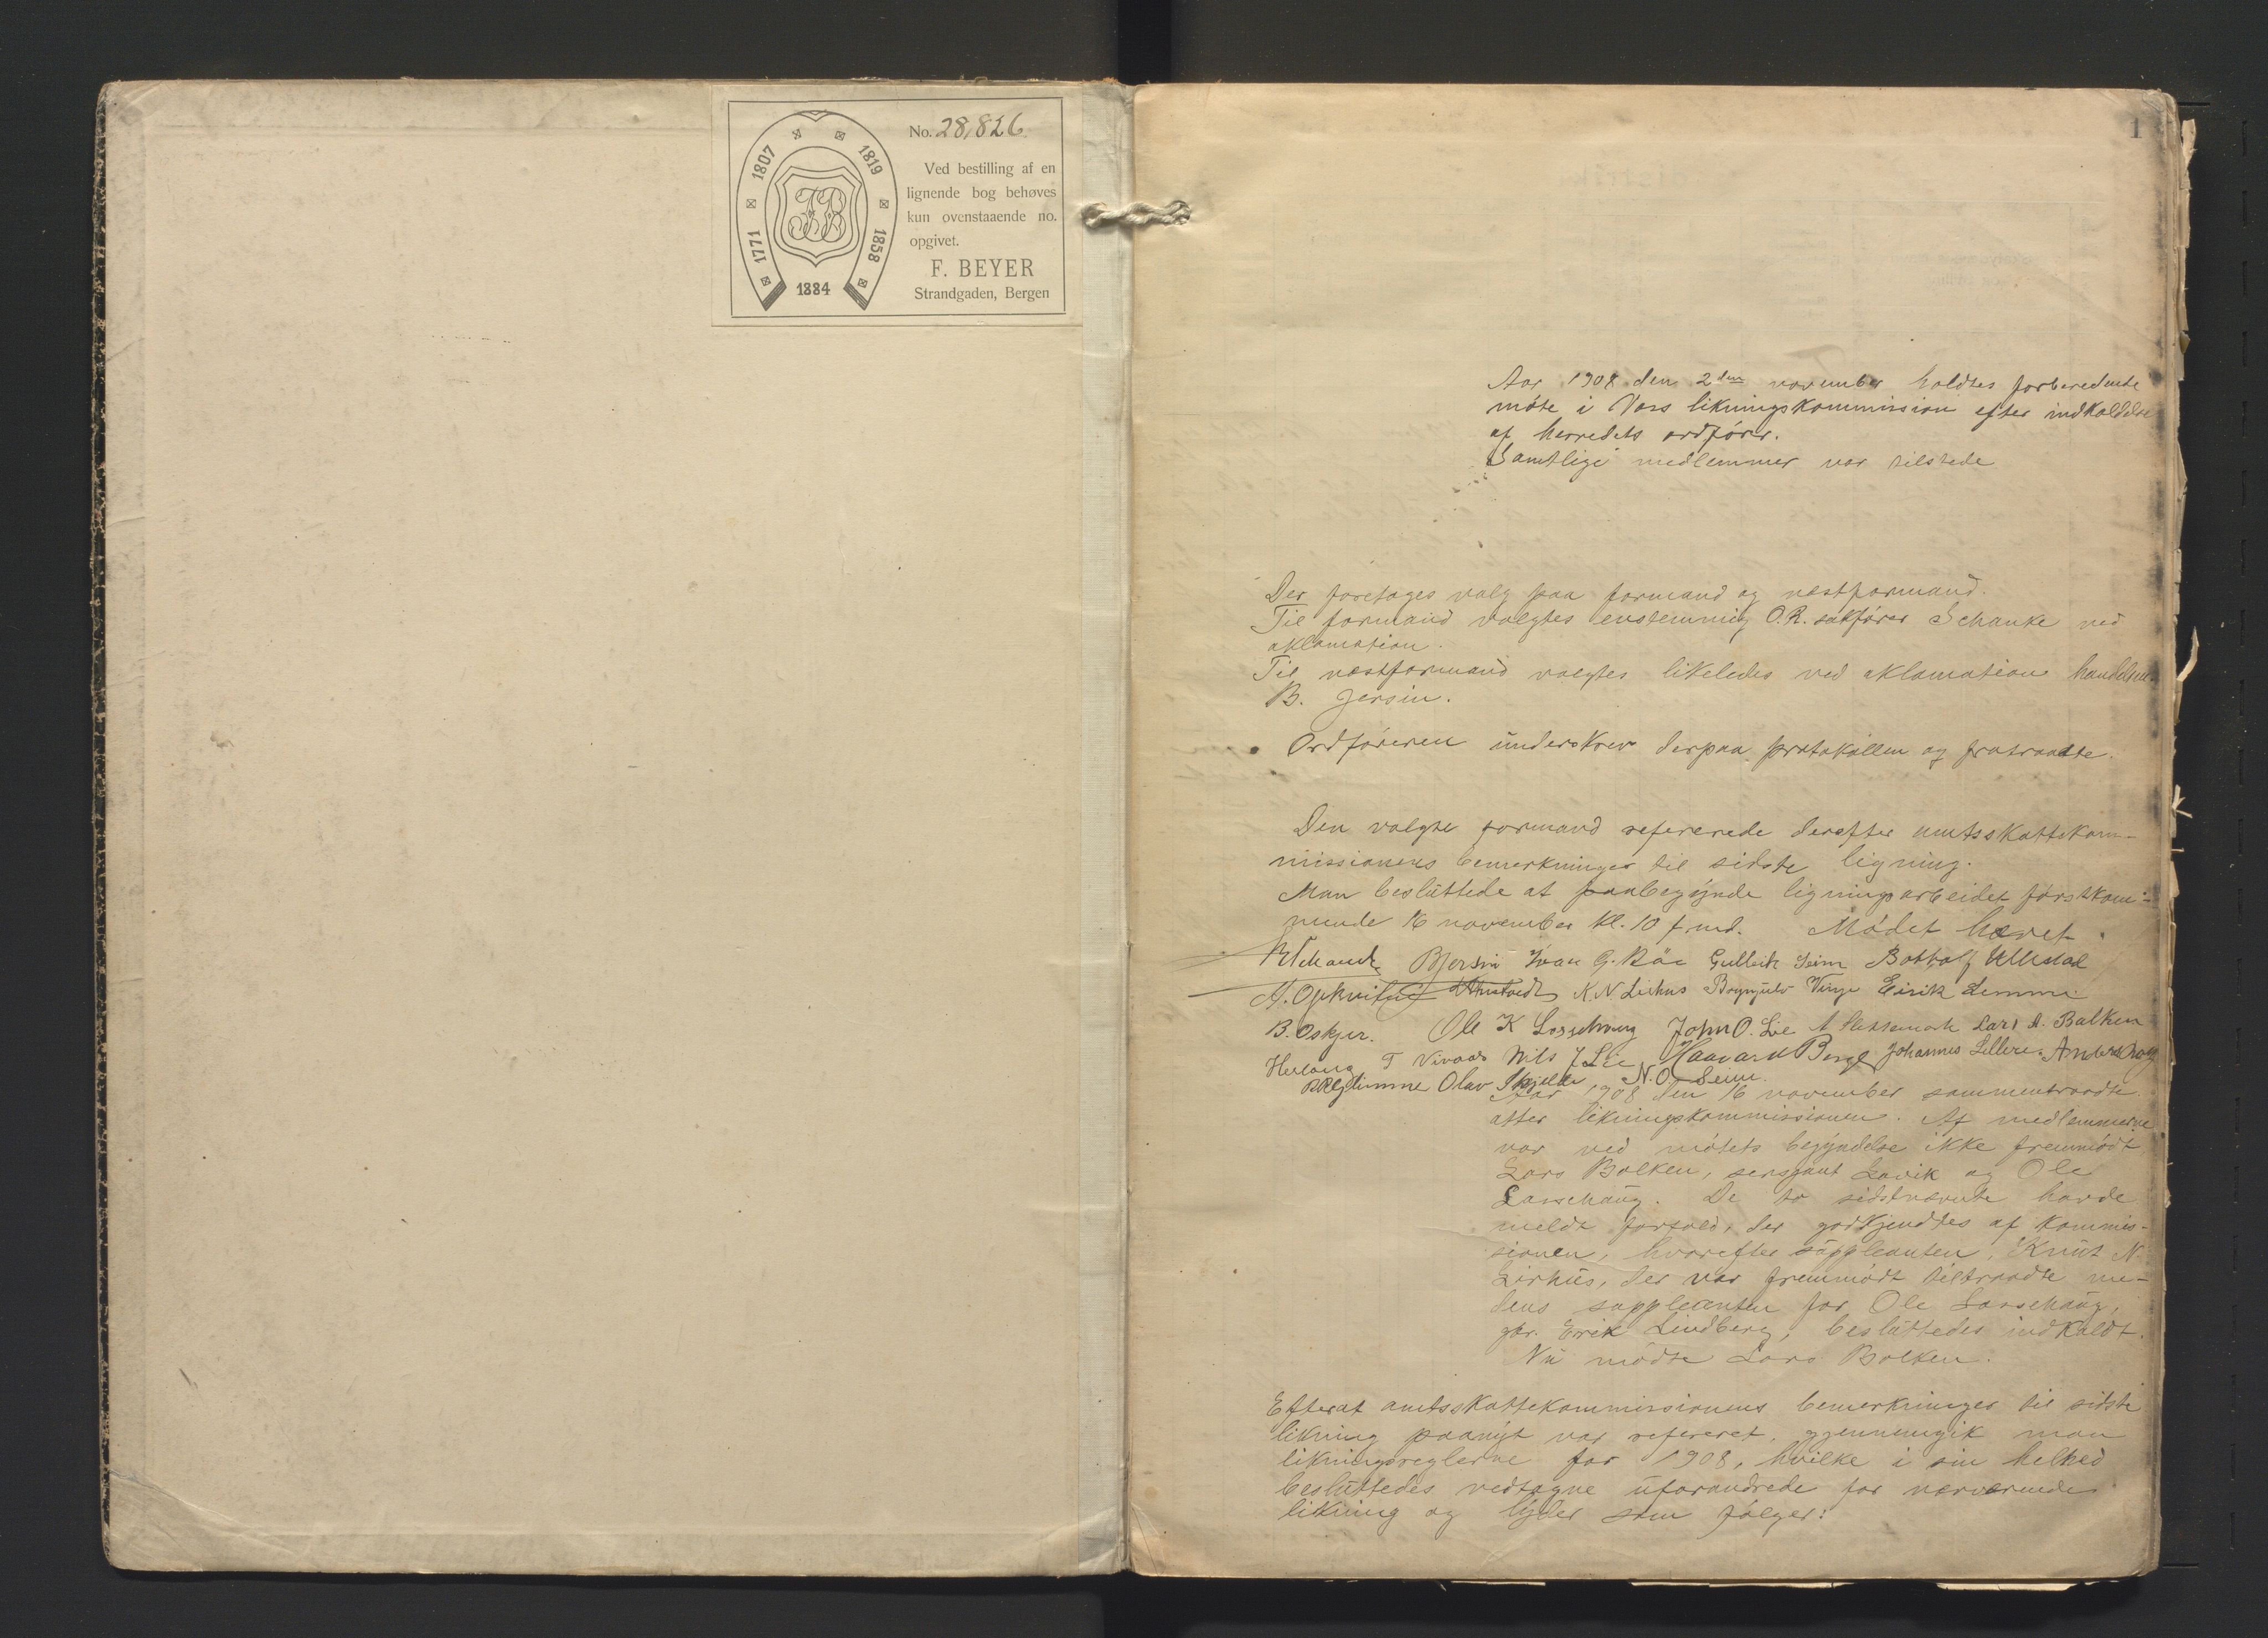 1771 1807 1819 1858
1884
No. 28,826
Ved bestilling af en
lignende bog behøves
kun ovenstaaende no.
opgivet.
F. BEYER
Strandgaden, Bergen
1
Aar 1908 den 2den november holdtes forberedende
møte i Voss likningskommission efter indkaldelse
af herredets ordfører.
Samtlige medlemmer var tilstede
Der foretages valg paa formand og næstformand.
Til formand valgtes enstemmig O.R. sakfører Schanke ved
aklamation.
Til næstformand valgtes likeledes ved aklamation handelsm.
B. Jersin.
Ordføreren underskrev derpaa protokollen og fratraadte.
Den valgte formand refererede derefter amtsskattekom-
missionens bemerkninger til sidste ligning.
Man besluttede at paabegynde ligningsarbeidet førstkom-
mende 16 november kl. 10 fmd. Mødet hævet.
Schanke BJersin Ivar G. Råe Gulleik Seim Botholf Ullestad
K. N. Lirhus Brynjulv Vinje Eirik Lemme
B. Oskjer. Ole K Lassehaug John O. Lie Lars A. Balken
T Vivaas Nils J Lie Haavard Berge Johannes Lillere Anders
Glimme Olav Skjelde N. O. Seim
Aar 1908 den 16 november sammentraadte
atter likningskommissionen. Af medlemmerne
var ved møtets begyndelse ikke fremmødt
Lars Bolken, sersjant Lavik og Ole
Lassehaug. De to sidstnævnte havde
meldt forfald, der godkjendtes af kommis-
sionen, hvorefter suppleanten, Knut N.
Lirhus, der var fremmødt tiltraadte me-
dens suppleanten for Ole Lassehaug,
gbr. Erik Lindberg, besluttedes indkaldt.
Nu mødte Lars Bolken.
Efterat amtsskattekommissionens bemerkninger til sidste
likning paanyt var refereret, gjennemgik man
likningsreglerne for 1908, hvilke i sin helhed
besluttedes vedtagne uforandrede for nærværende
likning og lyder som følger: